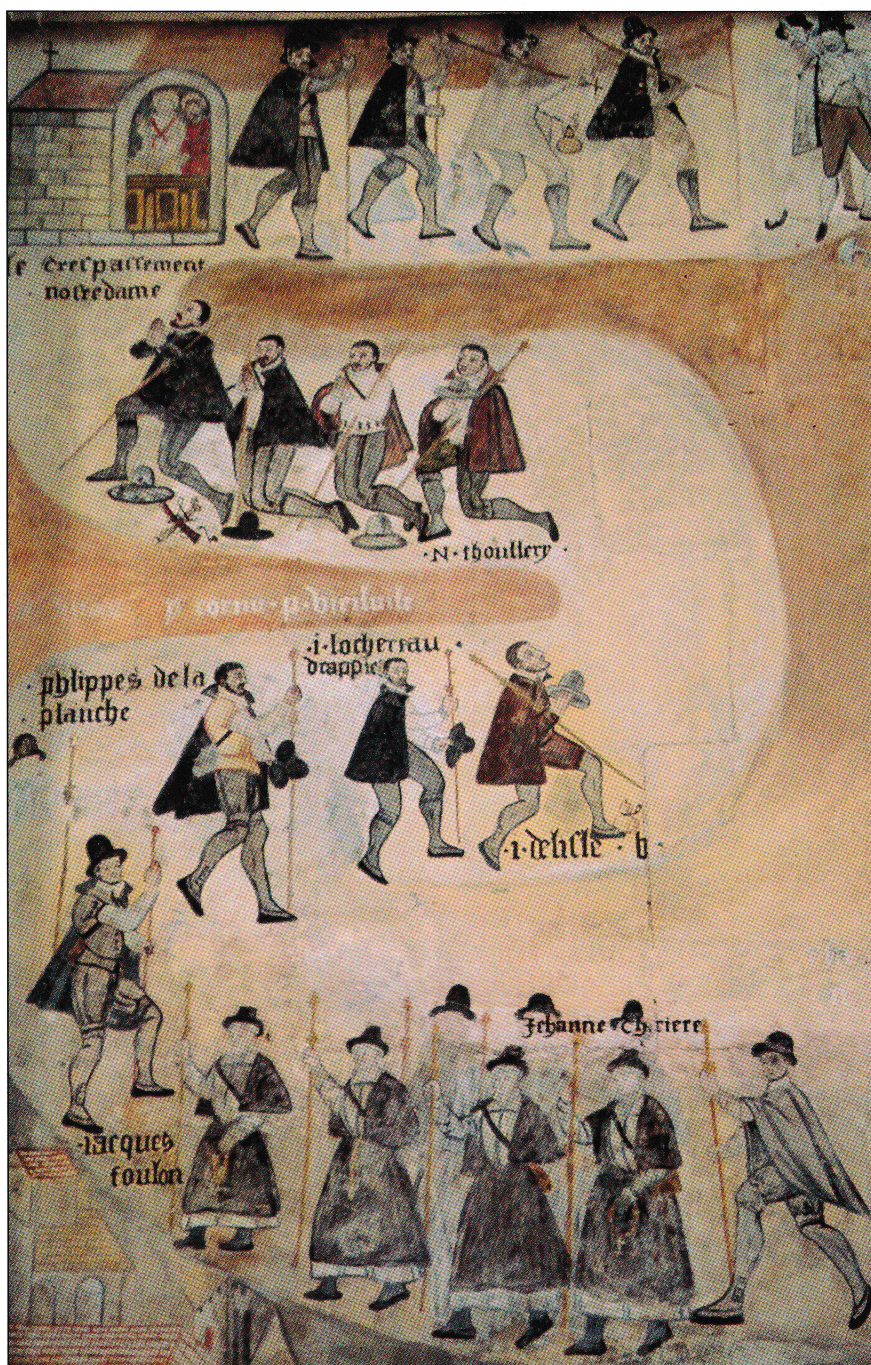 le trespassement
nostredame
·N·thoussery·
p cornu·p·
·i·lochereau·
drappie
·phlippes dela
·planche
·i·delisle·b·
Jehanne Chariere
·iacques
foulon